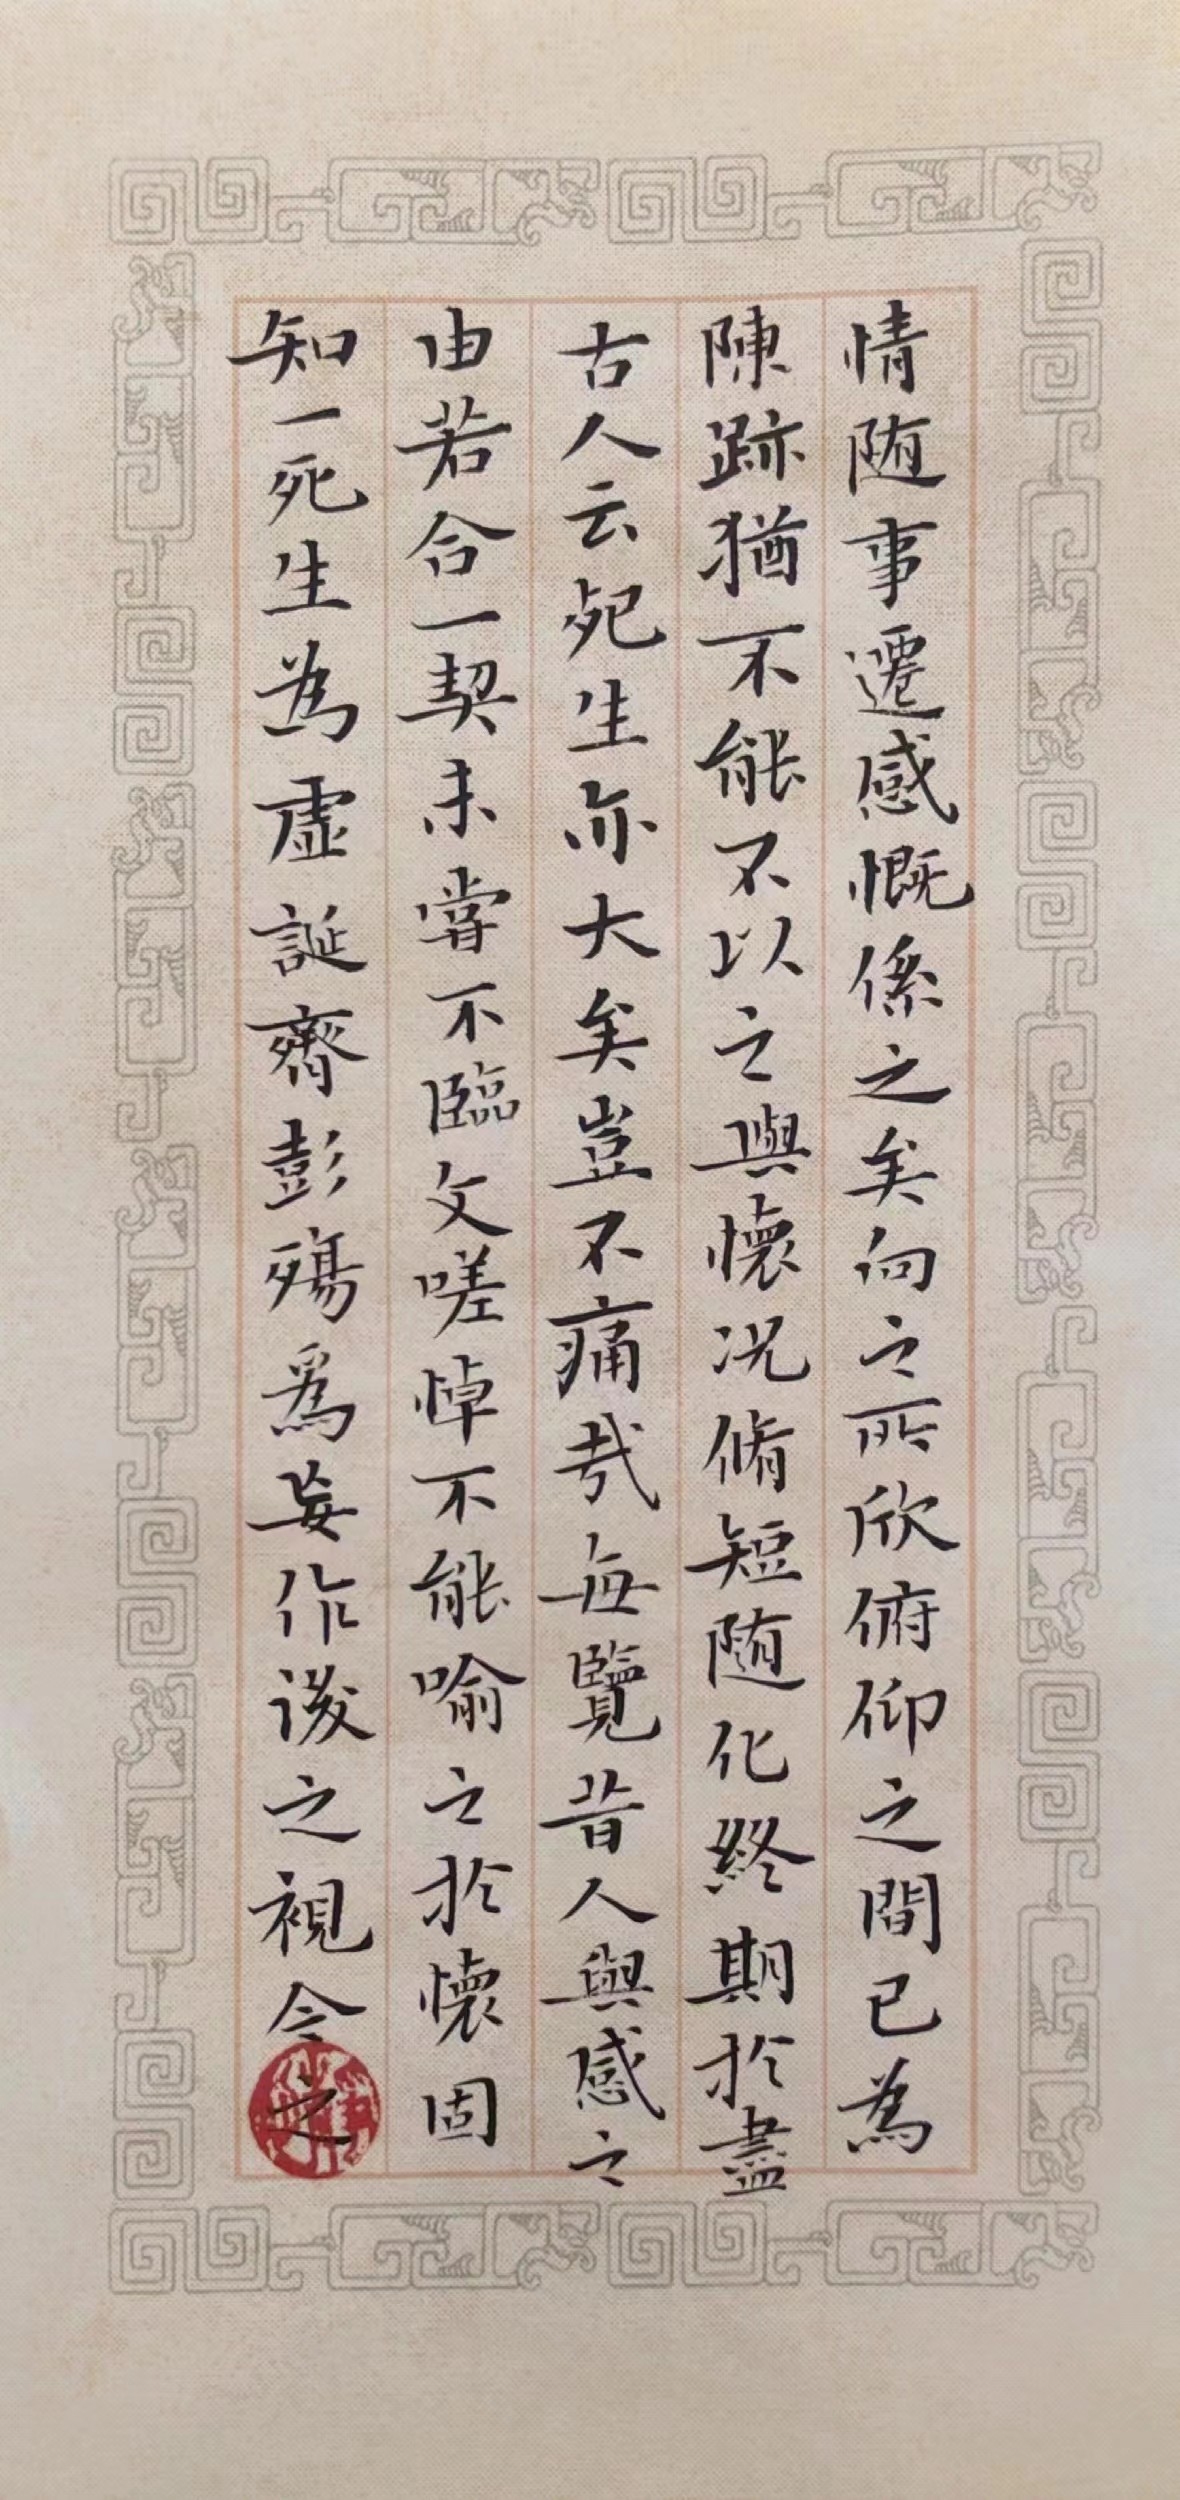 情随事遷感慨係之矣向之所欣俯仰之間已為
陳跡猶不能不以之興懷况脩短随化終期於盡
古人云死生亦大矣豈不痛哉每覽昔人興感之
由若合一契未嘗不臨文嗟悼不能喻之於懷固
知一死生為虛誕齊彭殤爲妄作後之視今之